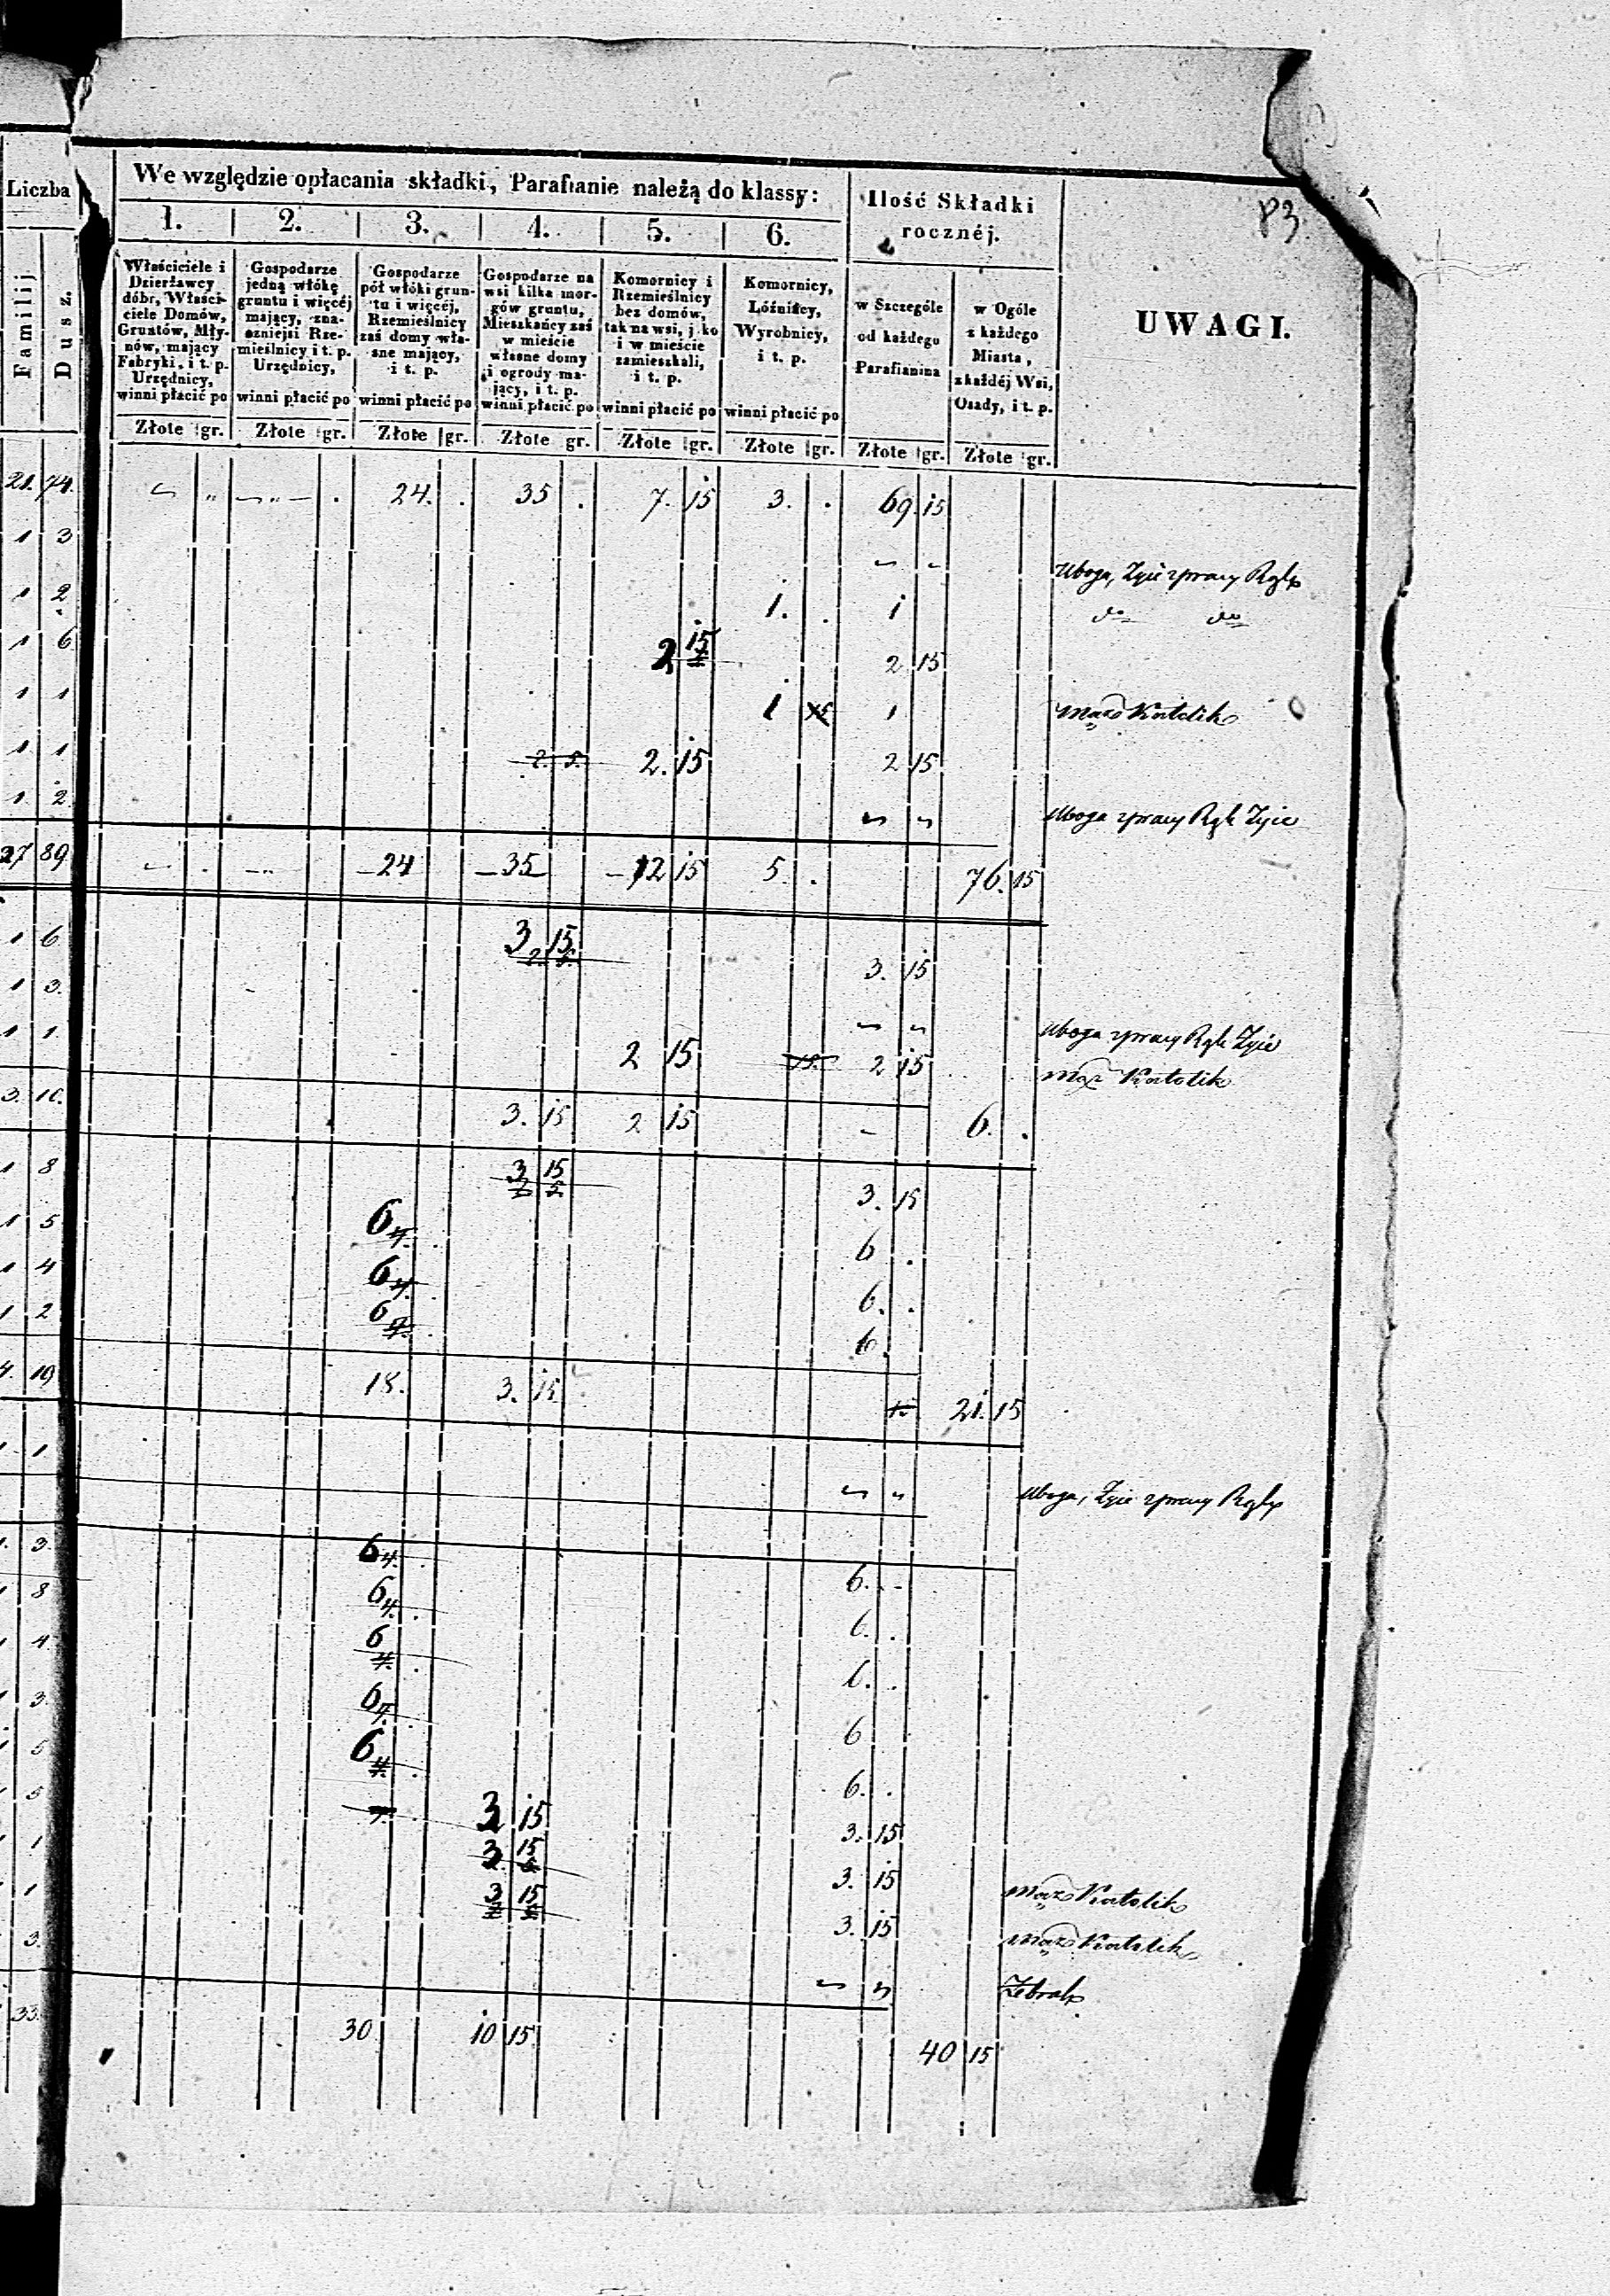 83.
Liczba
Familij
Dusz.
We względzie opłacania składki, Parafianie należą do klassy:
1. 2. 3. 4. 5. 6.
Właściciele i
Dzierżawcy
dóbr, Właści-
ciele Domów,
Gruntów, Mły-
nów, mający
Fabryki, i t. p.
Urzędnicy,
winni płacić po
Gospodarze
jedną włókę
gruntu i więcéj
mający, zna-
czniejsi Rze-
mieślnicy i t. p.
Urzędnicy,
winni płacić po
Gospodarze
pół włóki grun-
tu i więcéj,
Rzemieślnicy
zaś domy wła-
sne mający,
i t. p.
winni płacić po
Gospodarze na
wsi kilka mor-
gów gruntu,
Mieszkańcy zaś
w mieście
własne domy
i ogrody ma-
jący, i t. p.
winni płacić po
Komornicy i
Rzemieślnicy
bez domów,
tak na wsi, jako
i w mieście
zamieszkali,
i t. p.
winni płacić po
Komornicy,
Wyrobnicy,
i t. p.
winni płacić po
Ilość Składki
rocznéj.
w Szczególe
od każdego
Parafianina
w Ogóle
z każdego
Miasta,
z każdéj Wsi,
Osady, i t. p.
UWAGI.
Złote gr. Złote gr. Złote gr. Złote gr. Złote gr. Złote gr. Złote gr. Złote gr.
21. 74. 24. 35 7. 15 3. 69. 15
1 3 Uboga, Życie z pracy Rąk
1 2 1. 1 do do
1 6 2 15 2 15
1 1 1 1 Mąż Katolik
1 1 2. 15 2 15
1 2 Uboga z pracy Rąk Życie
27 89 24 35 12 15 5. 76. 15
1 6 3 15 3. 15
1 3. Uboga z pracy Rąk Życie
1 1. 2 15 2 15 Mąż Katolik
3. 10. 3. 15 2 15 6.
1 8 3 15 3. 15
1 5 6 6
1 4 6 6.
1 2 6 6.
4. 19 18. 3. 15 21. 15
1 1 Uboga, Życie z pracy Rąk
1. 3. 6 6.
1 8 6 6.
1 4 6 6.
1 3. 6 6
1 5 6 6.
1 5 3 15 3. 15
1 1 3 15 3. 15 Mąż Katolik
1 1 3 15 3. 15 Mąż Katolik
3. Żebrak
33. 30 10 15 40 15